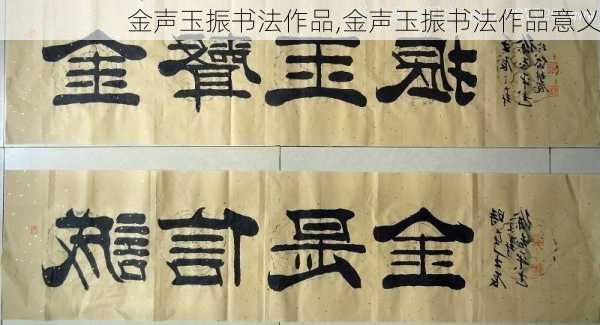 金声玉振书法作品,金声玉振书法作品意义
金聲玉振
誠信是金